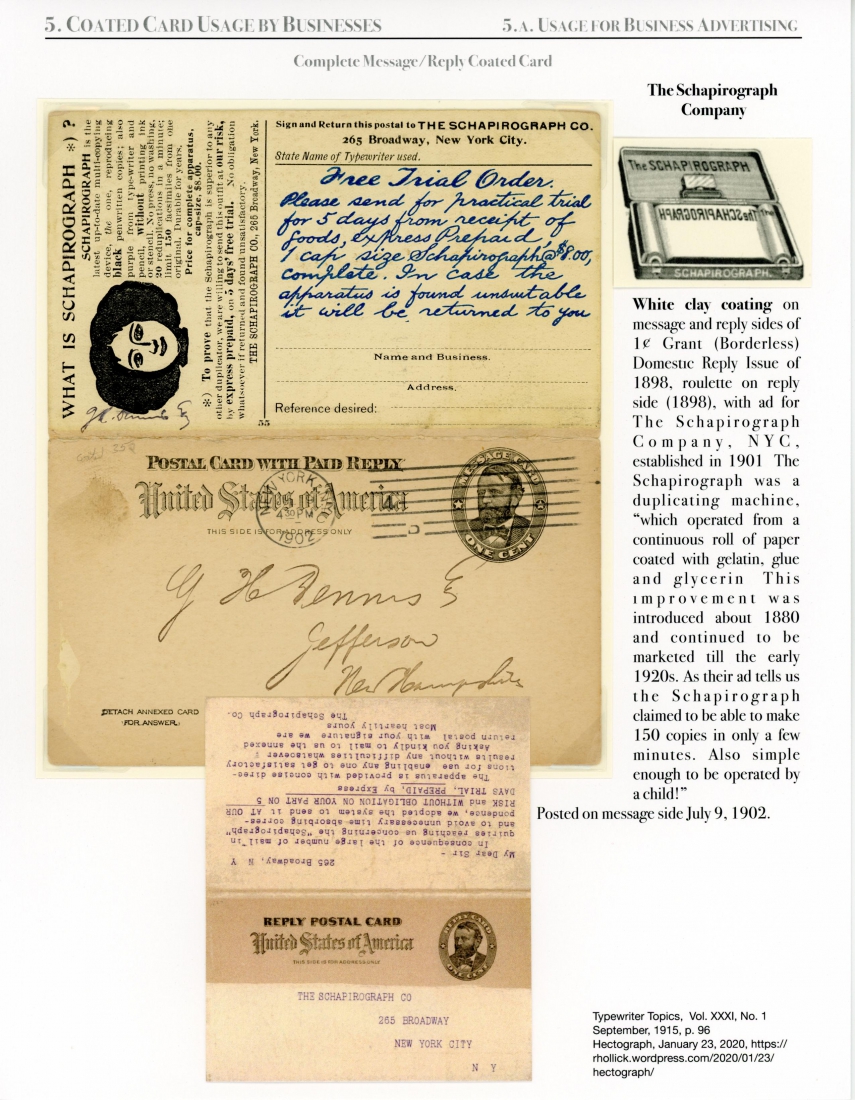 5. COATED CARD USAGE BY BUSINESSES
5.A. USAGE FOR BUSINESS ADVERTISING
Complete Message/Reply Coated Card
The Schapirograph
Company
WHAT IS SCHAPIROGRAPH *) ?
SCHAPIROGRAPH is the
latest up-to-date multi-copying
device, the one, reproducing
black penwritten copies; also
purple from type-writer and
pencil, without printing ink
or stencil. No press, no washing.
20 reduplications in a minute;
limit 150 facsimiles from one
original. Durable for years.
Price for complete apparatus,
cap-size, $8.00.
*) To prove that the Schapirograph is superior to any
other duplicator, we are willing to send this outfit at our risk,
by express prepaid, on 5 days' free trial. No obligation
whatsoever if returned and found unsatisfactory.
THE SCHAPIROGRAPH CO., 265 Broadway, New York.
55
Sign and Return this postal to THE SCHAPIROGRAPH CO.
265 Broadway, New York City.
State Name of Typewriter used.
Free Trial Order.
Please send for practical trial
for 5 days from receipt of
goods, express Prepaid,
1 cap size Schapirograph @ $8.00,
complete. In case the
apparatus is found unsuitable
it will be returned to you
Name and Business.
Address.
Reference desired:
The SCHAPIROGRAPH
The SCHAPIROGRAPH
SCHAPIROGRAPH.
White clay coating on
message and reply sides of
1¢ Grant (Borderless)
Domestic Reply Issue of
1898, roulette on reply
side (1898), with ad for
The Schapirograph
Company, NYC,
established in 1901 The
Schapirograph was a
duplicating machine,
“which operated from a
continuous roll of paper
coated with gelatin, glue
and glycerin This
improvement was
introduced about 1880
and continued to be
marketed till the early
1920s. As their ad tells us
the Schapirograph
claimed to be able to make
150 copies in only a few
minutes. Also simple
enough to be operated by
a child!”
Posted on message side July 9, 1902.
POSTAL CARD WITH PAID REPLY.
United States of America
THIS SIDE IS FOR ADDRESS ONLY
NEW YORK, N.Y.
430 PM
1902
MESSAGE CARD
ONE CENT
G H Dennis
Jefferson
New Hampshire
DETACH ANNEXED CARD
FOR ANSWER.
265 Broadway, N Y
My Dear Sir -
In consequence of the large number of mail in-
quiries reaching us concerning the "Schapirograph"
and to avoid unnecessary time absorbing corres-
pondence, we adopted the system to send it AT OUR
RISK and WITHOUT OBLIGATION ON YOUR PART ON 5
DAYS TRIAL, PREPAID, by Express
The apparatus is provided with concise direc-
tions for use enabling any one to get satisfactory
results without any difficulties whatsoever
Asking you kindly to mail to us the annexed
return postal with your signature we are
Most heartily yours
The Schapirograph Co.
REPLY POSTAL CARD
United States of America
THIS SIDE IS FOR ADDRESS ONLY
REPLY CARD
ONE CENT
THE SCHAPIROGRAPH CO
265 BROADWAY
NEW YORK CITY
N Y
Typewriter Topics, Vol. XXXI, No. 1
September, 1915, p. 96
Hectograph, January 23, 2020, https://
rhollick.wordpress.com/2020/01/23/
hectograph/